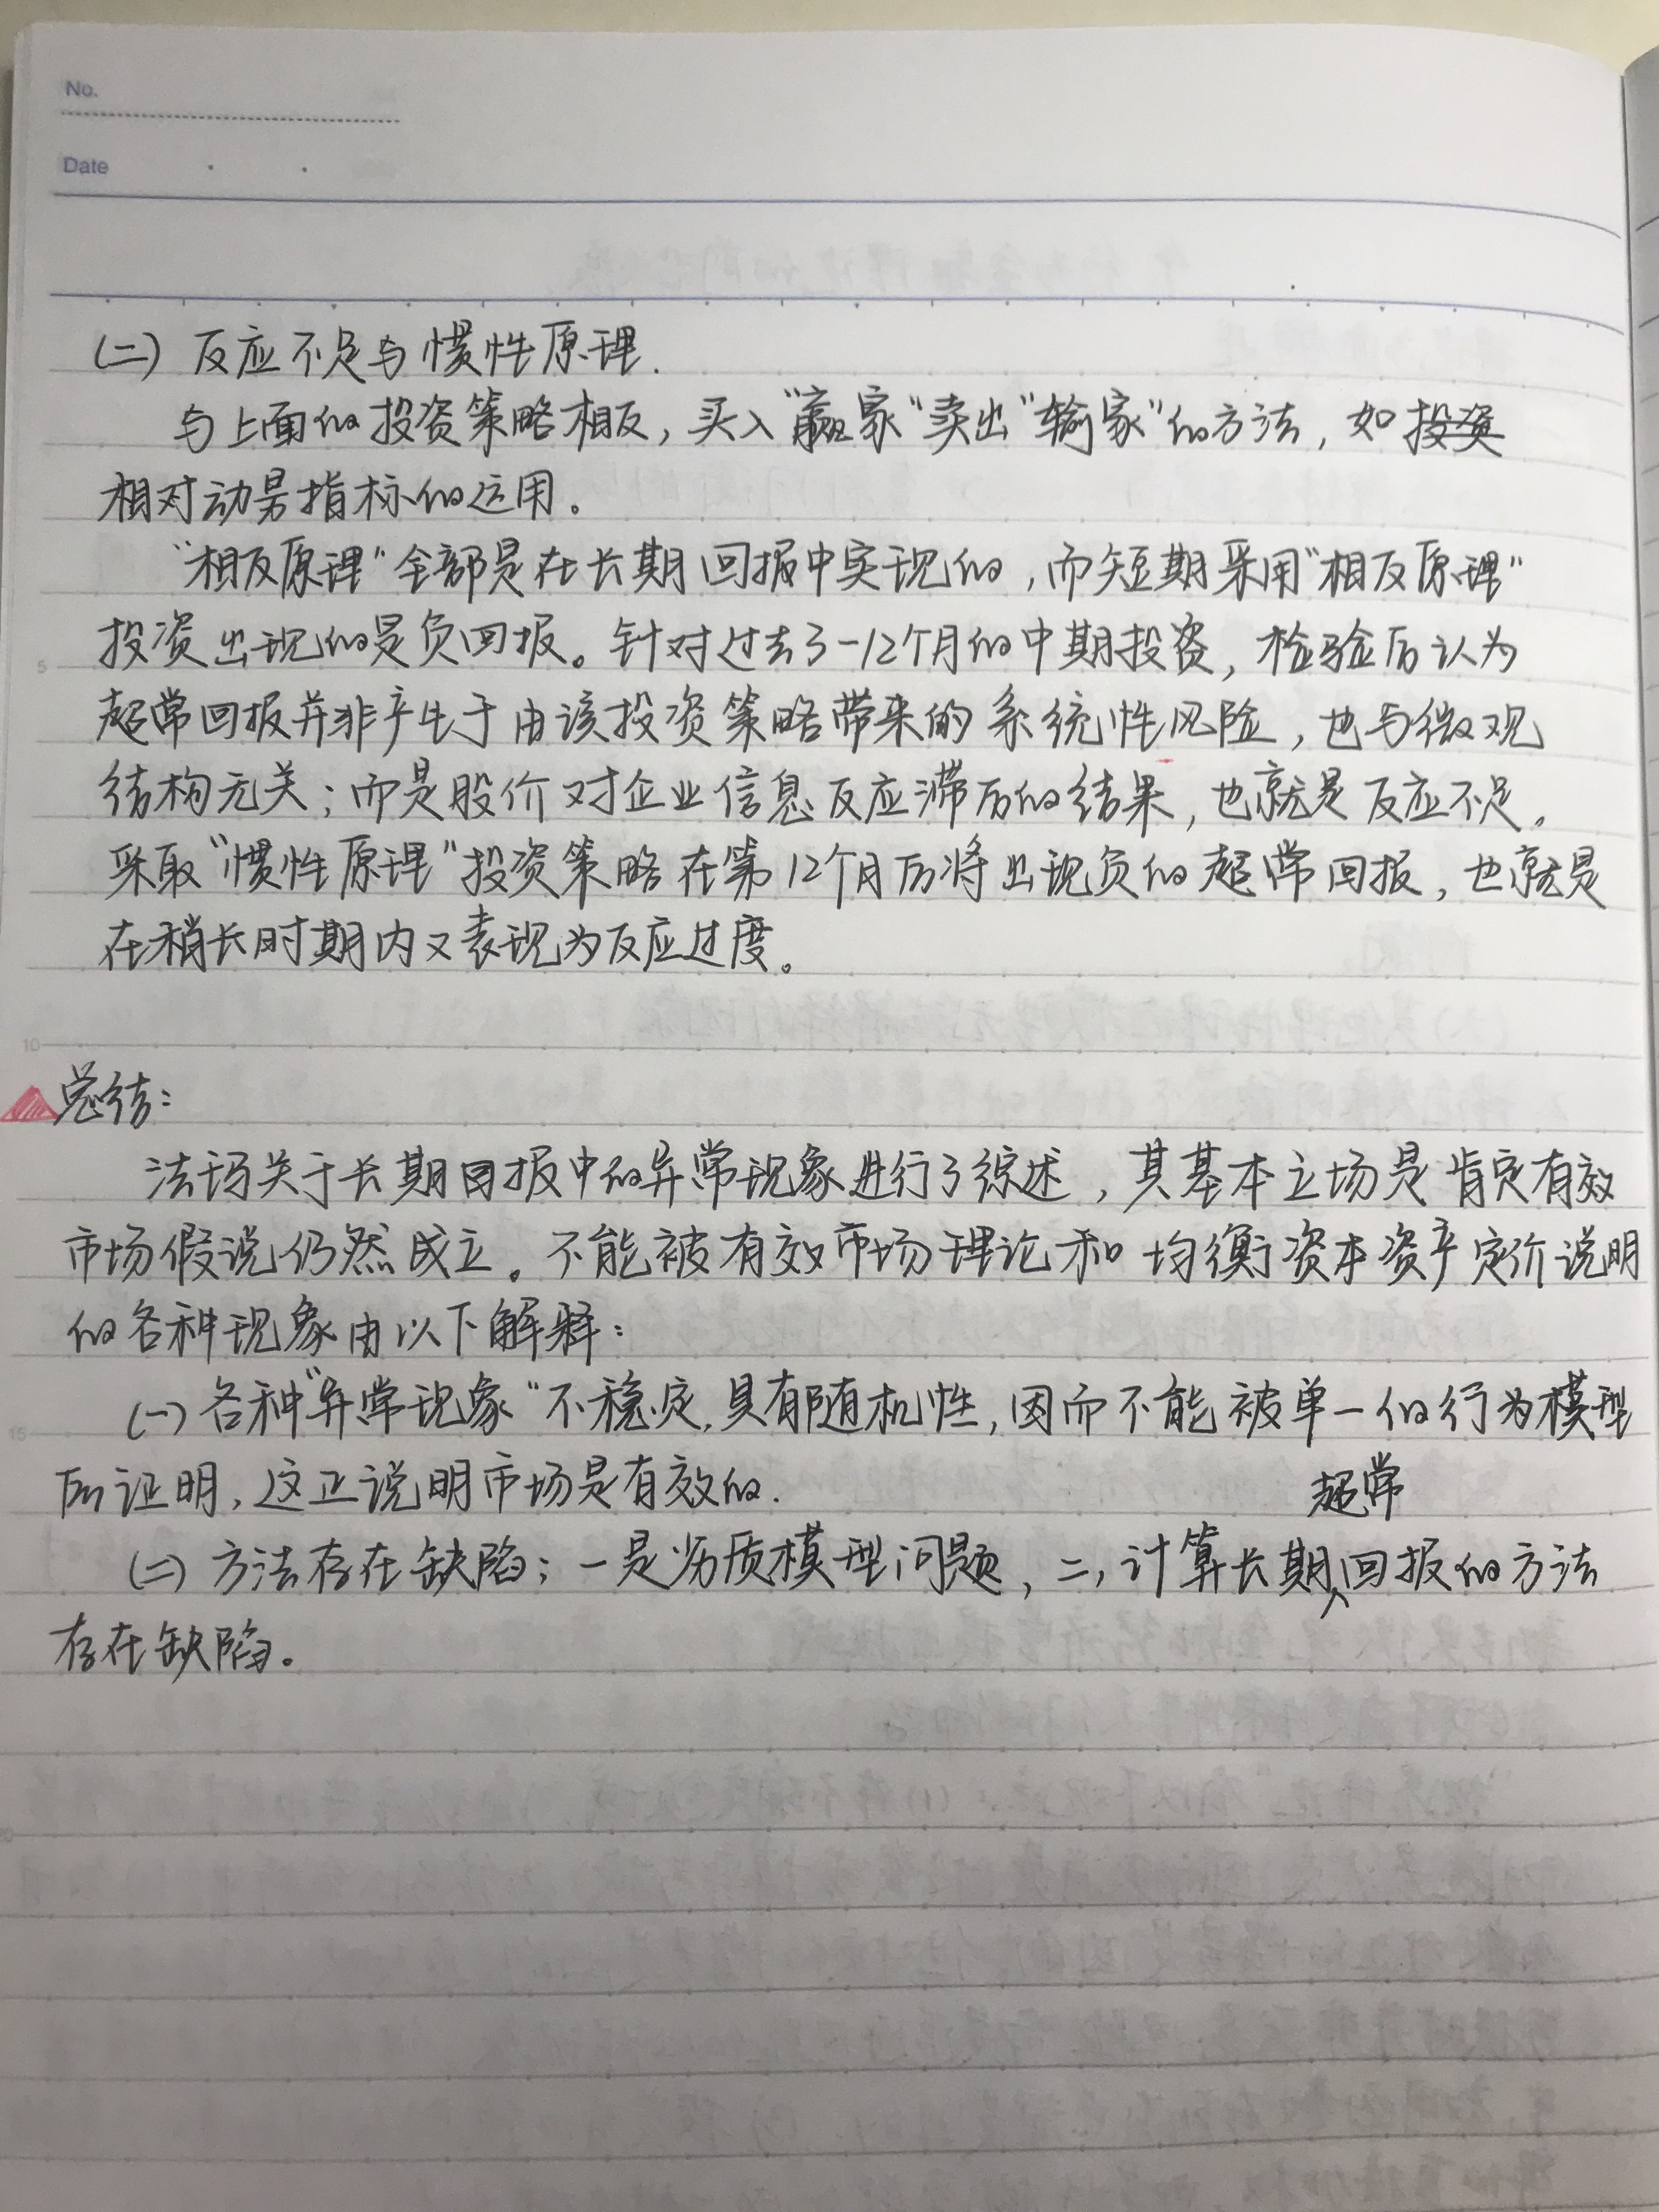 No.
Date
(二) 反应不足与惯性原理.
与上面的投资策略相反，买入“赢家”卖出“输家”的方法，如投资
相对动昴指标的运用。
“相反原理”全部是在长期回报中实现的，而短期采用“相反原理”
投资出现的是负回报。针对过去3-12个月的中期投资，检验后认为
超常回报并非产生于由该投资策略带来的系统性风险，也与微观
结构无关；而是股价对企业信息反应滞后的结果，也就是反应不足。
采取“惯性原理”投资策略在第12个月后将出现负的超常回报，也就是
在稍长时期内又表现为反应过度。
总结：
法玛关于长期回报中的异常现象进行了综述，其基本立场是肯定有效
市场假说仍然成立。不能被有效市场理论和均衡资本资产定价说明
的各种现象由以下解释：
(一) 各种“异常现象”不稳定,具有随机性,因而不能被单一的行为模型
所证明,这正说明市场是有效的.
(二) 方法存在缺陷；一是劣质模型问题，二,计算长期超常回报的方法
存在缺陷。
5
10
15